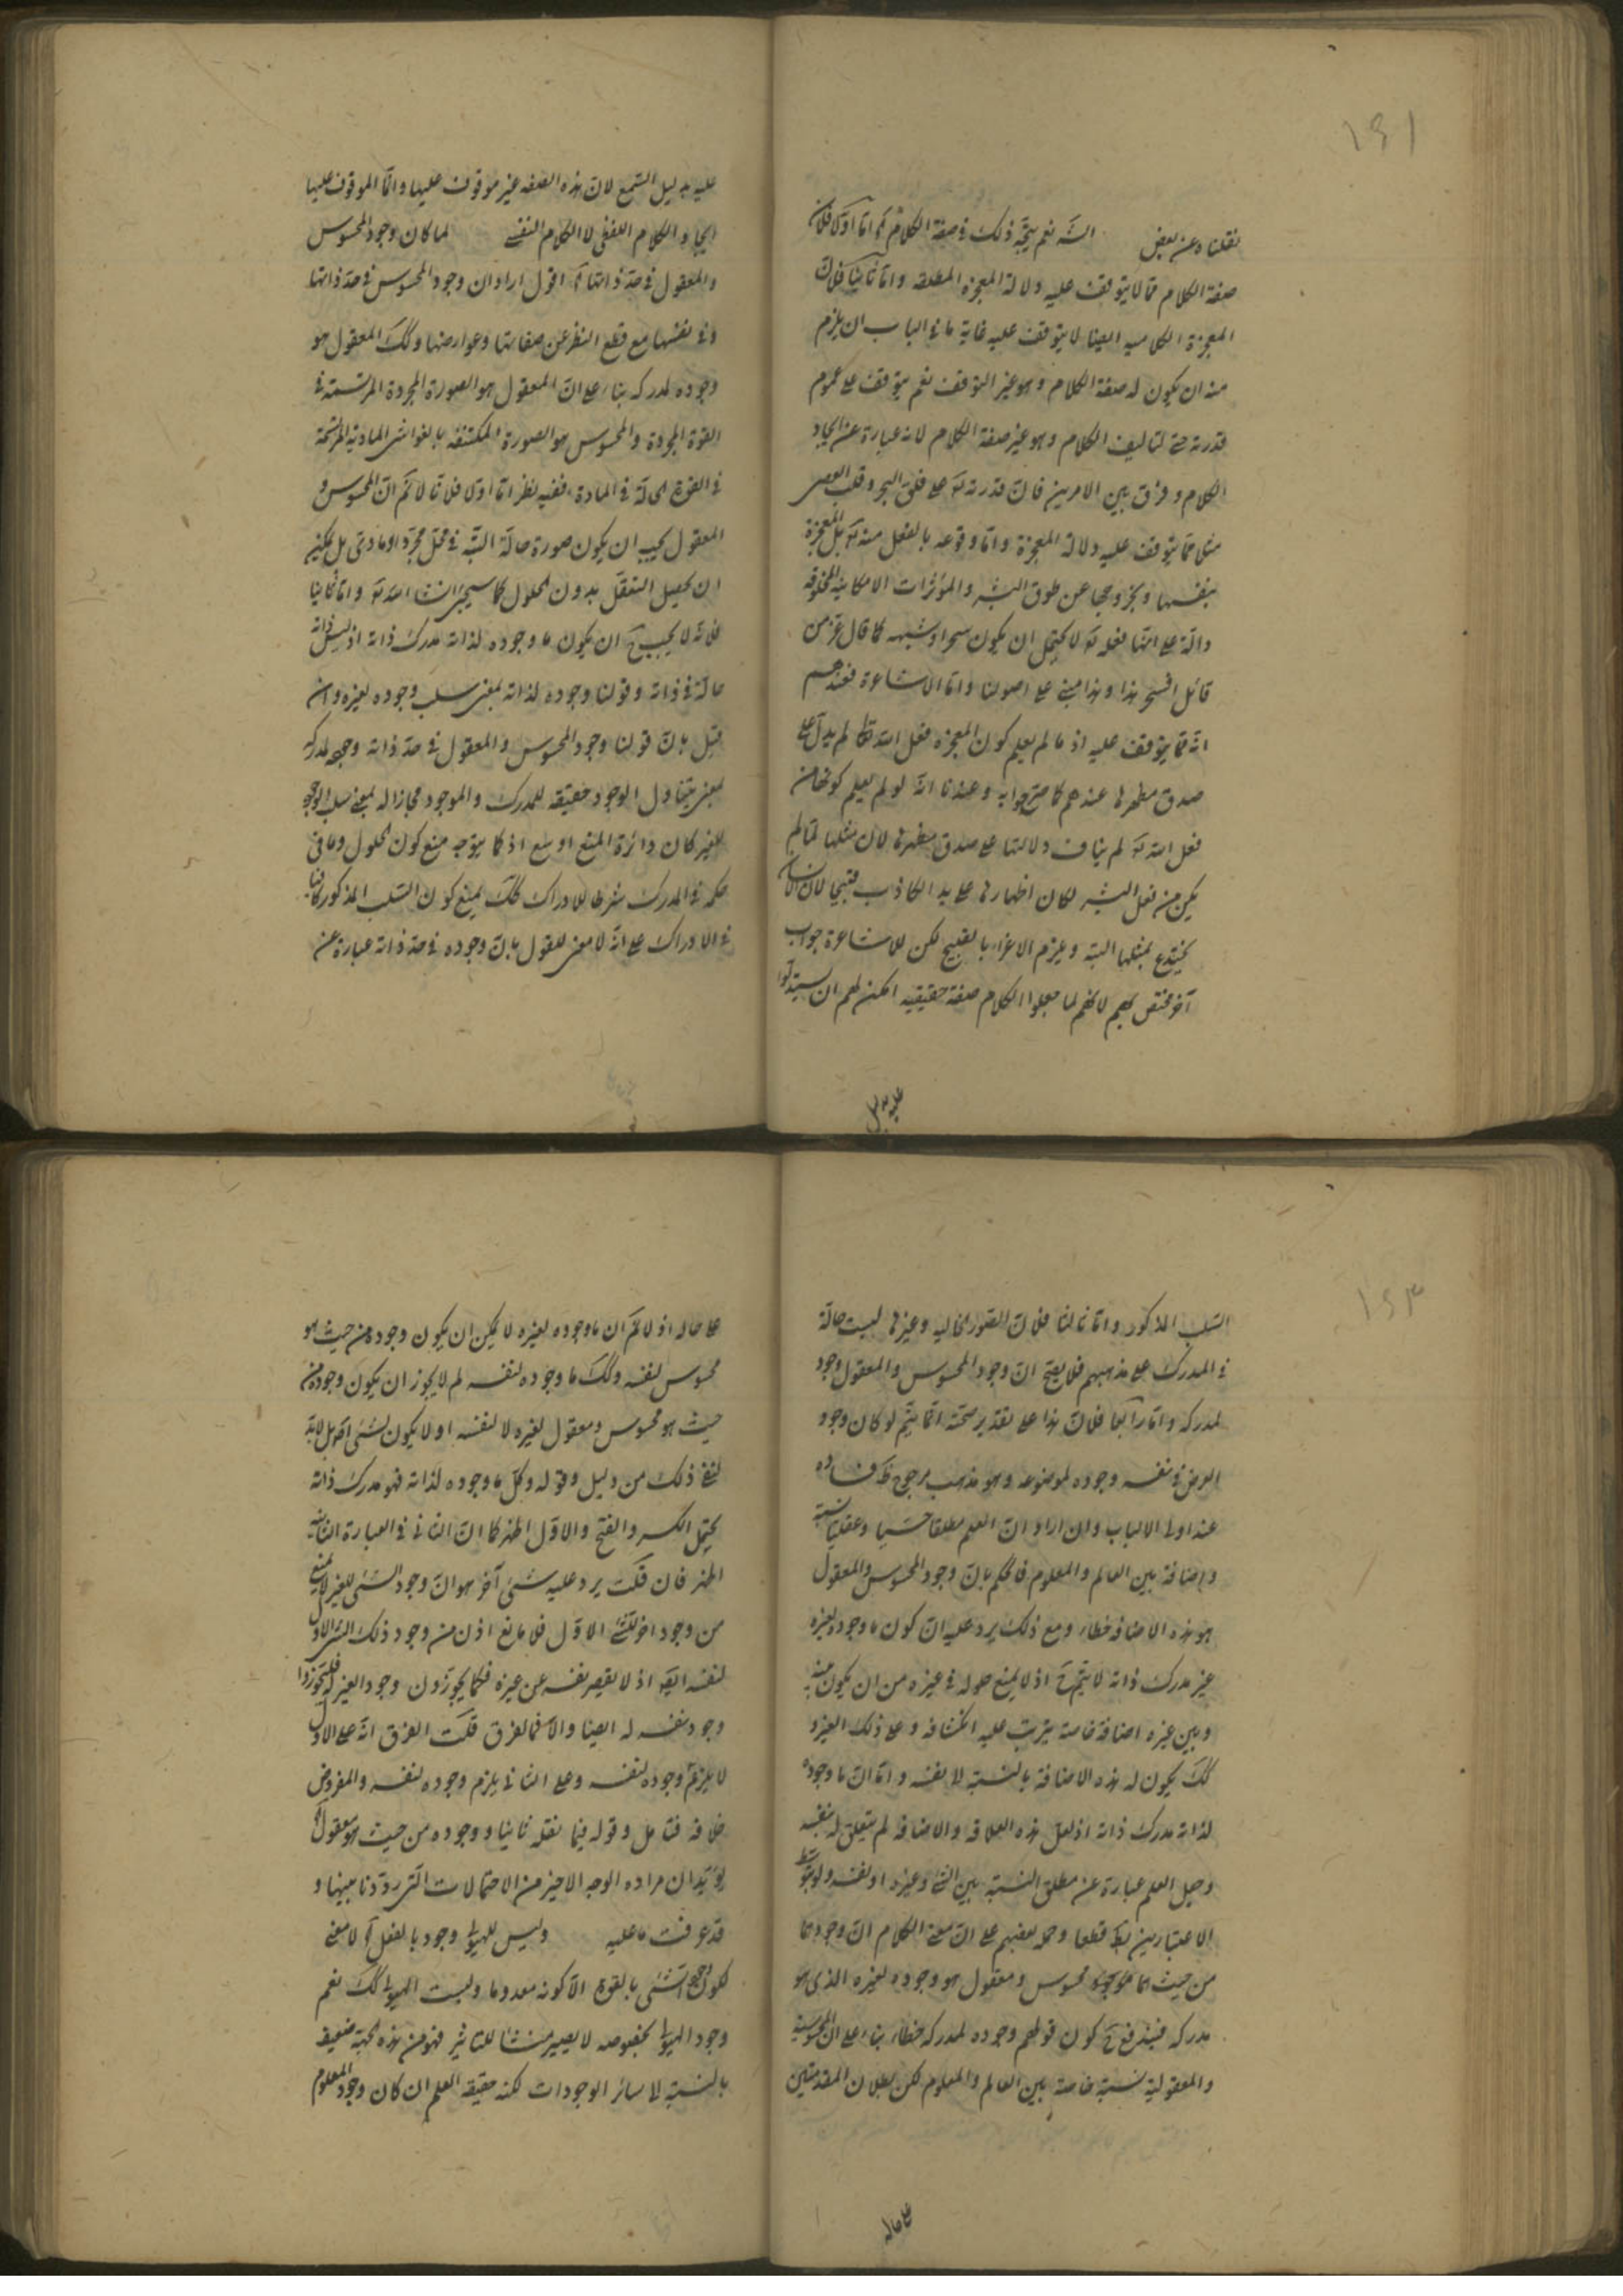 ١٤١
نقلنا وعن بعض الشه نعم يتجه ذلك في صفة الكلام ثم اما اولا فلان
صفة الكلام مما لا يتوقف عليه دلالة المعجزة المطلقة واما ثانيا فلان
المعجزة الكلاميه ايضا لا يتوقف عليه غاية ما في الباب ان يلزم
منه ان يكون له صفة الكلام وهو غير التوقف نعم يتوقف على عموم
قدرته حتى لتاليف الكلام وهو غير صفة الكلام لانه عبارة عن ايجاد
الكلام وفرق بين الامرين فان قدرته تع على فلق البحر وقلب العصى
مثلا مما يتوقف عليه دلالة المعجزة واما وقوعه بالفعل منه تع بل المعجزة
بنفسها وبخروجها عن طوق البشر والمؤثرات الامكانية المخلوقة
دالة على انها فعله تع لا يحتمل ان يكون سحرا وشبهه كما قال عز من
قائل افسحر هذا وهذا مبني على اصولنا واما الاشاعرة فعندهم
انه مما يتوقف عليه اذ ما لم يعلم كون المعجزة فعل الله تعالى لم يدل على
صدق مظهرها عندهم كما صرحوا به وعندنا انه لو لم يعلم كونها من
فعل الله تع لم يناف دلالتها على صدق مظهرها لان مثلها لما لم
يكن من فعل البشر لكان اظهارها على يد الكاذب قبيحا لان الناس
يخندع بمثلها البته ويلزم الاغراء بالقبيح لكن للاشاعرة جواب
آخر مختص بهم لانهم لما جعلوا الكلام صفة حقيقيه امكن لهم ان يستدلوا
عليه بدليل
عليه بدليل السمع لان هذه الصفه غير موقوف عليها وانما الموقوف عليها
ايجاد الكلام اللفظي لا الكلام النفسي لما كان وجود المحسوس
والمعقول في حد ذاتها آه اقول اراد ان وجود المحسوس في حد ذاتها
وفي نفسها مع قطع النظر عن صفاتها وعوارضها وكك المعقول هو
وجوده لمدركه بناء على ان المعقول هو الصورة المجردة المرتسمة في
القوة المجردة والمحسوس هو الصورة المكتنفه بالغواشي المادية المرتسمة
في القوة الحالة في المادة ففيه نظر اما اولا فلانا لا نم ان المحسوس و
المعقول يجب ان يكون صورة حالة البته في محل مجرد او مادي بل يمكن
ان يحصل التعقل بدون الحلول كما سيجئ انشا الله تع واما ثانيا
فلانه لا يجب ح ان يكون ما وجوده لذاته مدرك ذاته اذ ليس ذاته
حالة في ذاته وقولنا وجوده لذاته بمعنى سلب وجوده لغيره وان
قيل بان قولنا وجود المحسوس والمعقول في حد ذاته وجوده لمدركه
بمعنى يتناول الوجود حقيقه للمدرك والموجود مجازا له بمعنى سلب الوجود
للغير كان دائرة المنع اوسع اذ كما يتوجه منع كون الحلول وما في
حكمه في المدرك شرطا للادراك كك يمنع كون السلب المذكور كافيا
في الادراك على انه لا معنى للقول بان وجوده في حد ذاته عبارة عن
١٤٣
السلب المذكور واما ثالثا فلان الصور الخاليه وغيرها ليست حالة
في المدرك على مذهبهم فلا يصح ان وجود المحسوس والمعقول وجود
لمدركه واما رابعا فلان هذا على تقدير صحته انما يتم لو كان وجود
العرض في نفسه وجوده لموضوعه وهو مذهب مرجح ظ فساده
عند اولى الالباب وان اراد ان العلم مطلقا حسيا وعقليا نسبة
واضافة بين العالم والمعلوم فالحكم بان وجود المحسوس والمعقول
هو هذه الاضافه خطاء ومع ذلك يرد عليه ان كون ما وجوده لغيره
غير مدرك ذاته لا يتم ح اذ لا يمنع حلوله في غيره من ان يكون بينه
وبين غيره اضافة خاصة يترتب عليه انكشافه وعلى ذلك الغير و
كك يكون له هذه الاضافة بالنسبة لا نفسه واما ان ما وجوده
لذاته مدرك ذاته اذ لعل هذه العلاقه والاضافه لم يتعلق له بنفسه
وجعل العلم عبارة عن مطلق النسبة بين الشئ وغيره او نفسه ولو بتوسط
الاعتبارين بط قطعا وحمله بعضهم على ان معنى الكلام ان وجودهما
من حيث هما موجود محسوس ومعقول هو وجوده لغيره الذي هو
مدركه فيندفع ح كون قولهم وجوده لمدركه خطاء بناء على ان المحسوسية
والمعقولية نسبة خاصة بين العالم والمعلوم لكن بطلان المقدمتين
على حاله
على حاله اذ لا نم ان ما وجوده لغيره لا يمكن ان يكون وجوده من حيث هو
محسوس لنفسه وكك ما وجوده لنفسه لم لا يجوز ان يكون وجوده من
حيث هو محسوس ومعقول لغيره لا لنفسه او لا يكون لشئ آخر بل لابد
لنفي ذلك من دليل وقوله وكل ما وجوده لذاته فهو مدرك ذاته
يحتمل الكسر والفتح والاول اظهر كما ان الثاني في العبارة الثانية
اظهر فان قلت يرد عليه شئ آخر هو ان وجود الشئ للغير لا يمنع
من وجود اخر للشئ الاول فلا مانع اذن من وجود ذلك الشئ الاول
لنفسه ايضا اذ لا يقصر نفسه عن غيره فكما يجوزون وجود الغير له فليجوزوا
وجود نفسه له ايضا والا فما الفرق قلت الفرق انه على الاول
لا يلزم وجوده لنفسه وعلى الثاني يلزم وجوده لنفسه والمفروض
خلافه فتامل وقوله فيما نقله ثانيا ووجوده من حيث هو معقول آه
يؤيد ان مراده الوجه الاخير من الاحتمالات التي رددنا بينها و
قد عرفت ما عليه وليس للهيولى وجود بالفعل آه لا معنى
لكون وجود الشئ بالقوة الا كونه معدوما وليست الهيولى كك نعم
وجود الهيولى بخصوصه لا يصير منشأ للتاثير فهو من هذه الجهة ضعيف
بالنسبة لا سائر الوجودات لكنه حقيقة العلم ان كان وجود المعلوم